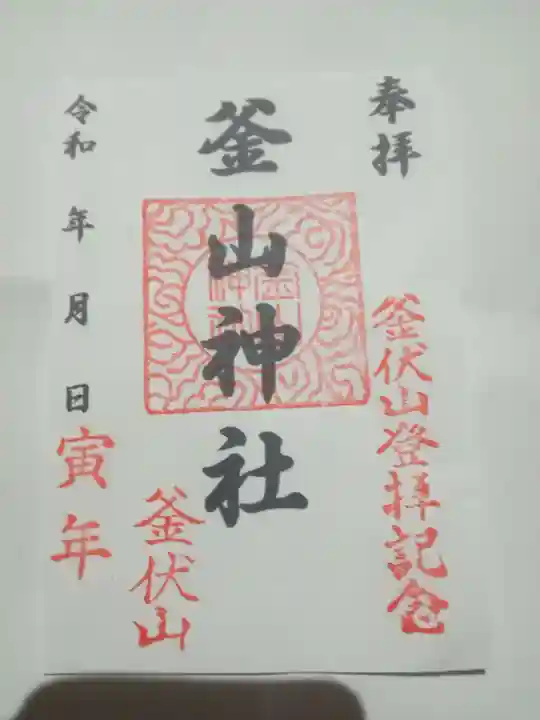 奉拝
釜伏山登拝記念
釜山神社
釜伏山
令和 年 月 日
寅年